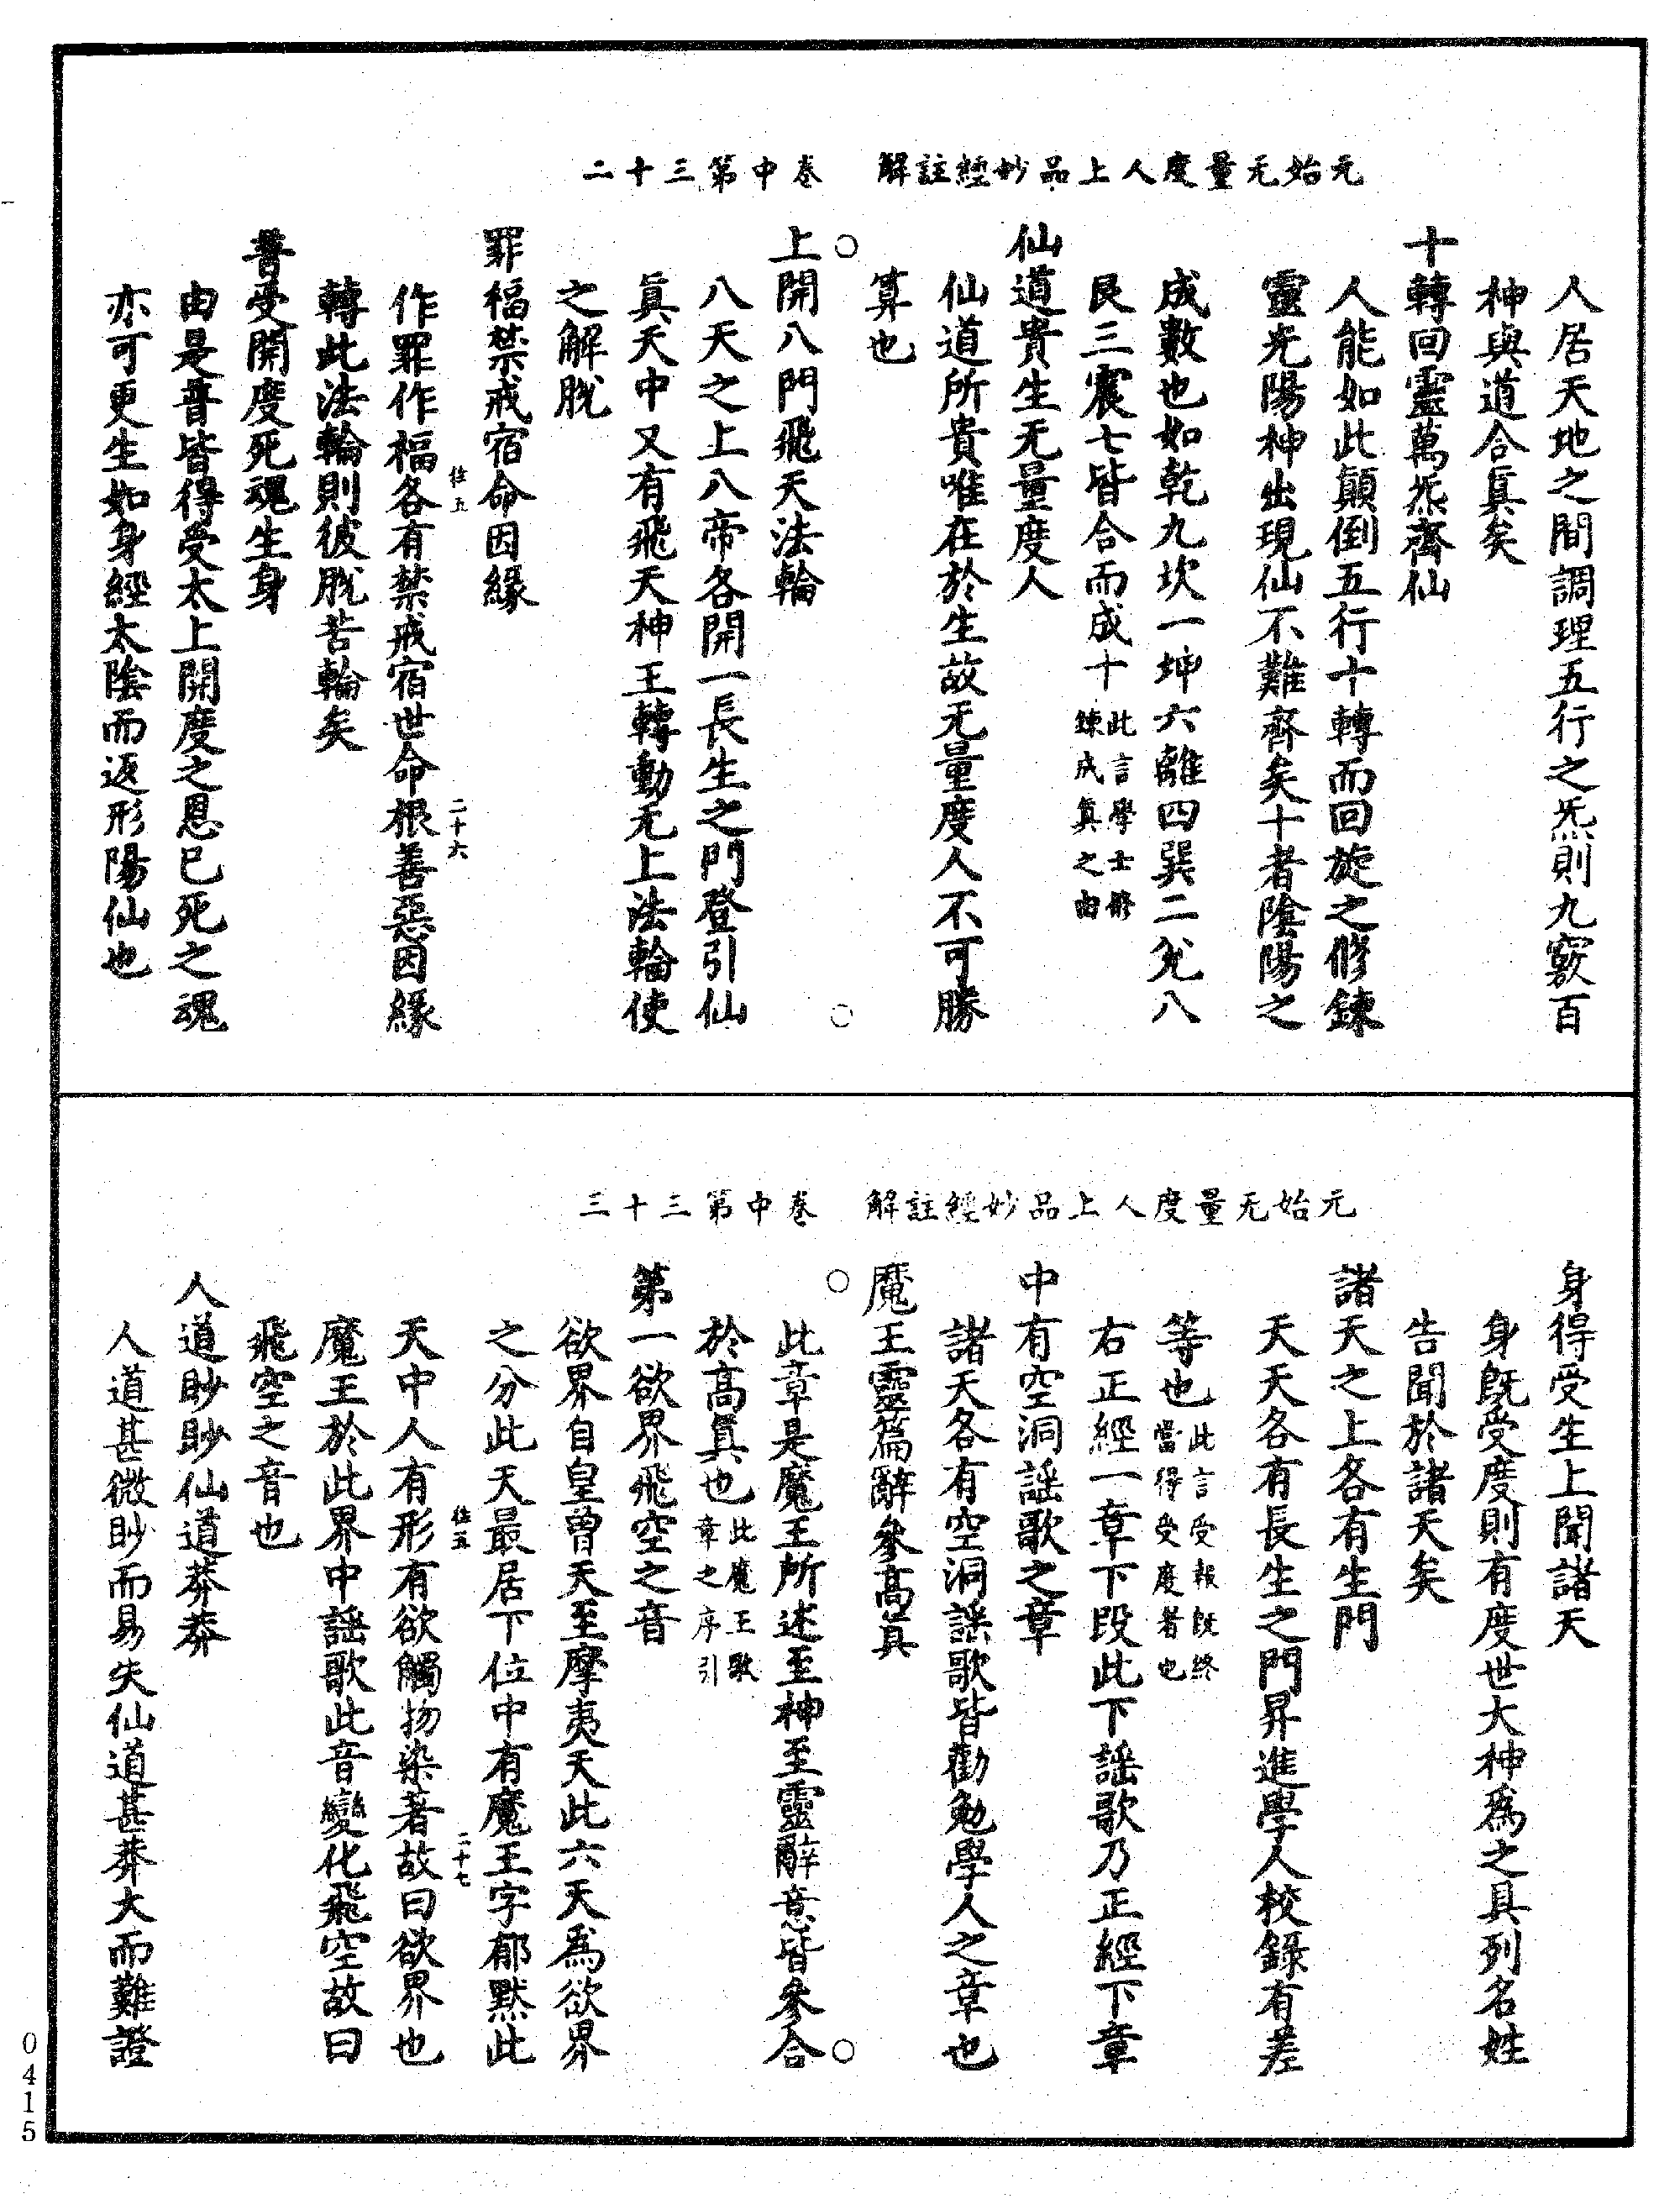 元始无量度人上品妙經註解　卷中第三十二
人居天地之間調理五行之炁則九竅百
神與道合眞矣
十轉回靈萬炁齊仙
人能如此顚倒五行十轉而回旋之修鍊
靈光陽神出現仙不難齊矣十者陰陽之
成數也如乾九坎一坤六離四巽二兌八
艮三震七皆合而成十此言學士修鍊成眞之由
仙道貴生无量度人
仙道所貴唯在於生故无量度人不可勝
算也
上開八門飛天法輪
八天之上八帝各開一長生之門登引仙
眞天中又有飛天神王轉動无上法輪使
之解脫
罪福禁戒宿命因緣
位五
二十六
作罪作福各有禁戒宿世命根善惡因緣
轉此法輪則彼脫苦輪矣
普受開度死魂生身
由是普皆得受太上開度之恩已死之魂
亦可更生如身經太陰而返形陽仙也
元始无量度人上品妙經註解　卷中第三十三
身得受生上聞諸天
身旣受度則有度世大神爲之具列名姓
告聞於諸天矣
諸天之上各有生門
天天各有長生之門昇進學人校錄有差
等也此言受報旣終當得受度者也
右正經一章下段此下謡歌乃正經下章
中有空洞謡歌之章
諸天各有空洞謡歌皆勸勉學人之章也
魔王靈篇辭參高眞
此章是魔王所述至神至靈辭意皆參合
於高眞也此魔王歌章之序引
第一欲界飛空之音
欲界自皇曾天至摩夷天此六天爲欲界
之分此天最居下位中有魔王字郁默此
位五
二十七
天中人有形有欲觸物染著故曰欲界也
魔王於此界中謡歌此音變化飛空故曰
飛空之音也
人道眇眇仙道莽莽
人道甚微眇而易失仙道甚莽大而難證
0415